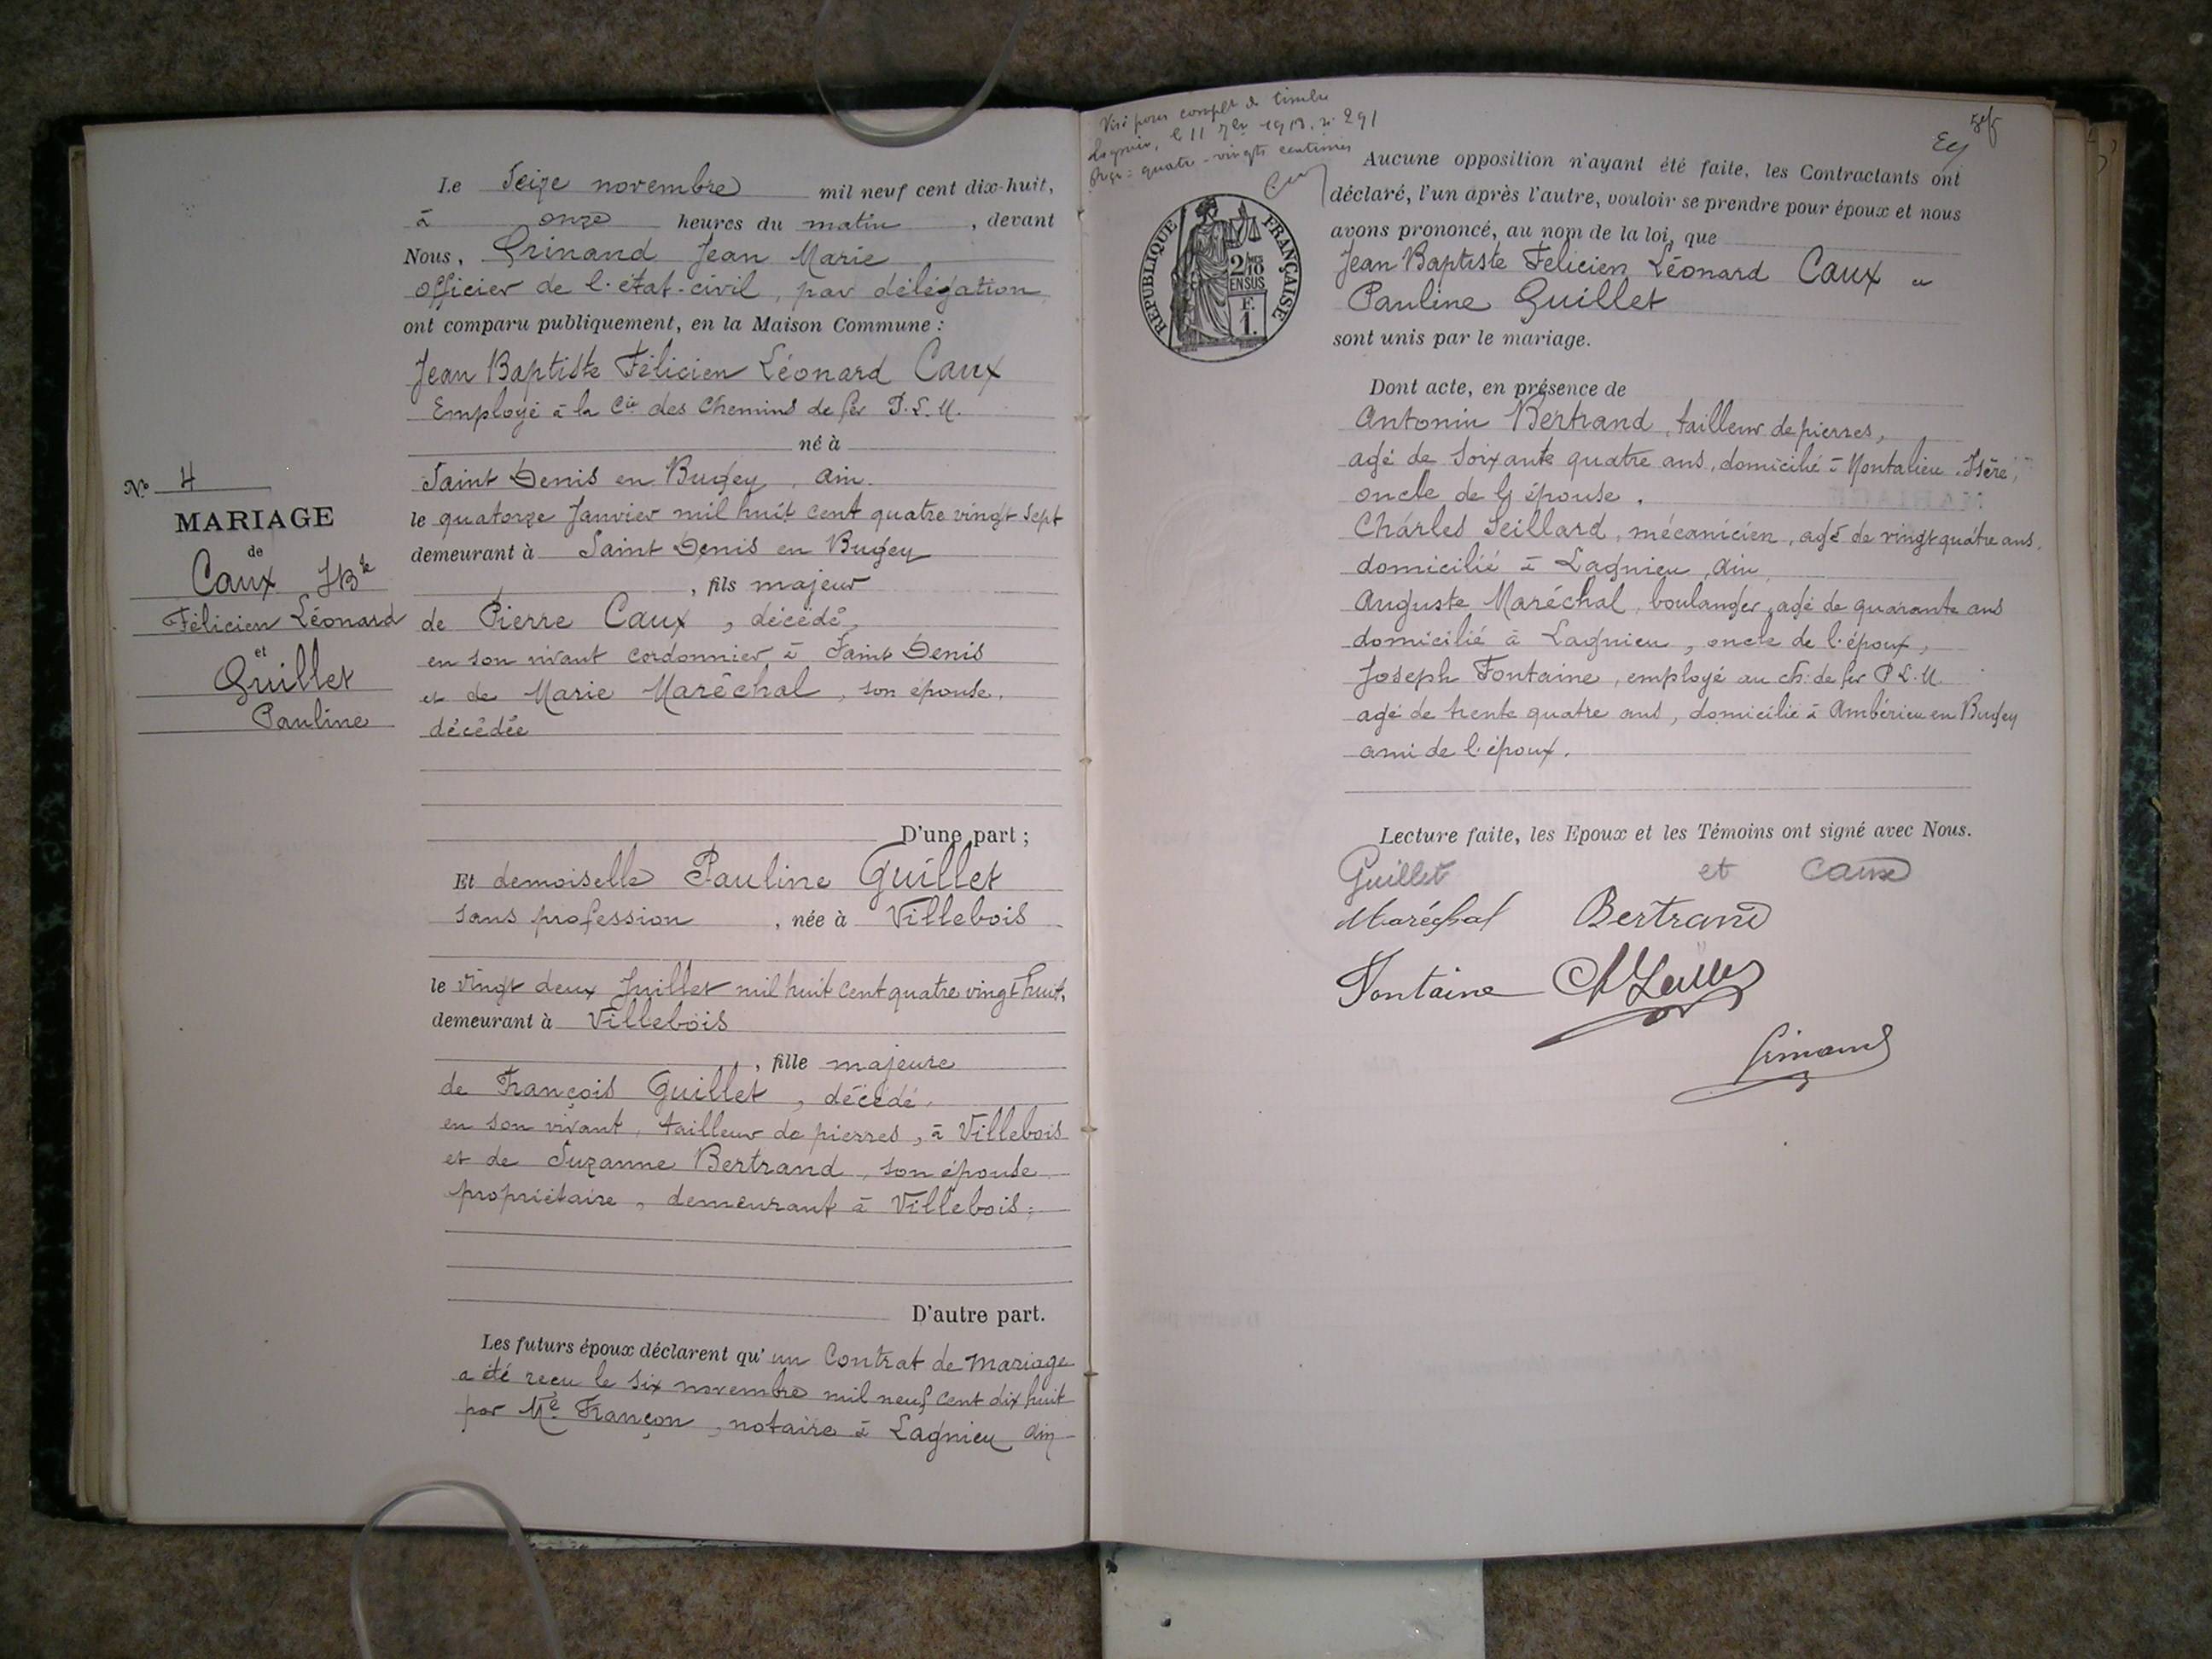 Le Seize novembre mil neuf cent dix-huit,
à onze heures du matin, devant
Nous, Grinand Jean Marie
officier de l'état-civil, par délégation
ont comparu publiquement, en la Maison Commune :
Jean Baptiste Félicien Léonard Caux
Employé à la Cie des Chemins de fer P.L.M.
né à
Saint Denis en Bugey, Ain.
le quatorze Janvier mil huit cent quatre vingt sept
demeurant à Saint Denis en Bugey
, fils majeur
de Pierre Caux, décédé,
en son vivant cordonnier à Saint Denis
et de Marie Maréchal, son épouse,
décédée
D'une part ;
Et demoiselle Pauline Guillet
sans profession, née à Villebois
le vingt deux Juillet mil huit cent quatre vingt huit,
demeurant à Villebois
, fille majeure
de François Guillet, décédé,
en son vivant, tailleur de pierres, à Villebois
et de Suzanne Bertrand, son épouse
propriétaire, demeurant à Villebois;
D'autre part.
Les futurs époux déclarent qu'un Contrat de mariage
a été reçu le six novembre mil neuf cent dix huit
par Me Françon, notaire à Lagnieu Ain
No 4
MARIAGE
de
Caux JBte
Félicien Léonard
et
Guillet
Pauline
Visé pour complt de timbre
Lagnieu, le 11 1919, n° 291
Reçu : quatre-vingts centimes
RÉPUBLIQUE FRANÇAISE
2/10
EN SUS
F.
1.
Aucune opposition n'ayant été faite, les Contractants ont
déclaré, l'un après l'autre, vouloir se prendre pour époux et nous
avons prononcé, au nom de la loi, que
Jean Baptiste Félicien Léonard Caux et
Pauline Guillet
sont unis par le mariage.
Dont acte, en présence de
Antonin Bertrand, tailleur de pierres,
agé de soixante quatre ans, domicilié à Montalieu, Isère,
oncle de l'épouse,
Charles Seillard, mécanicien, agé de vingt quatre ans,
domicilié à Lagnieu, Ain,
Auguste Maréchal, boulanger, agé de quarante ans
domicilié à Lagnieu, oncle de l'époux,
Joseph Fontaine, employé au ch. de fer P.L.M.
agé de trente quatre ans, domicilié à Ambérieu en Bugey
ami de l'époux.
Lecture faite, les Epoux et les Témoins ont signé avec Nous.
Guillet et Caux
Maréchal Bertrand
Fontaine
Grinand